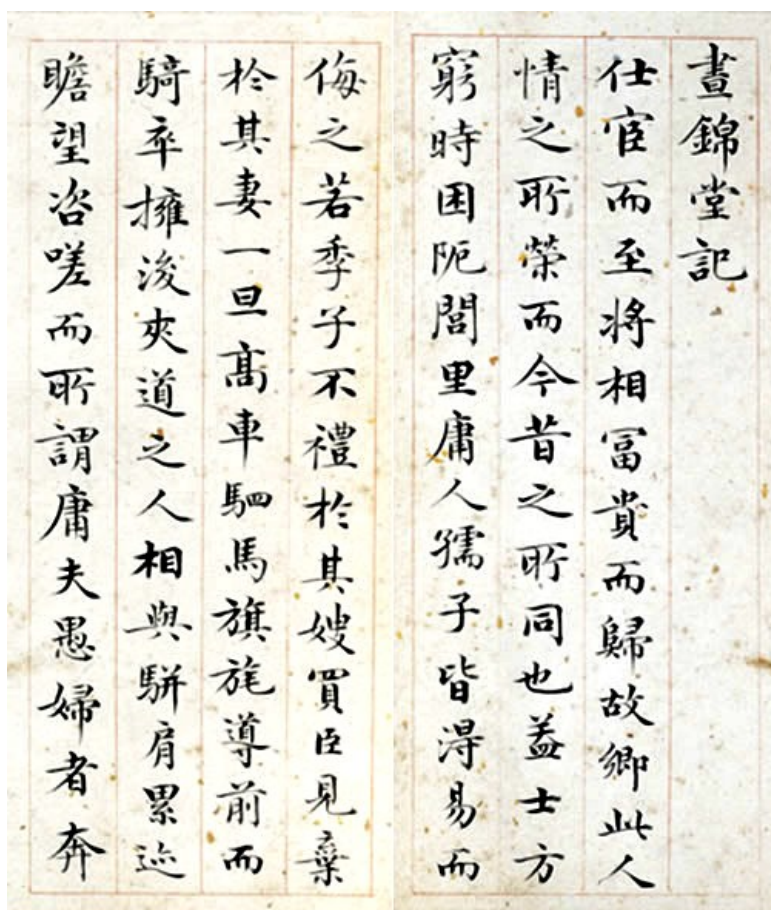 晝錦堂記
仕宦而至將相富貴而歸故鄉此人
情之所榮而今昔之所同也蓋士方
窮時困阨閭里庸人孺子皆得易而
侮之若季子不禮於其嫂買臣見棄
於其妻一旦高車駟馬旗旄導前而
騎卒擁後夾道之人相與駢肩累迹
瞻望咨嗟而所謂庸夫愚婦者奔